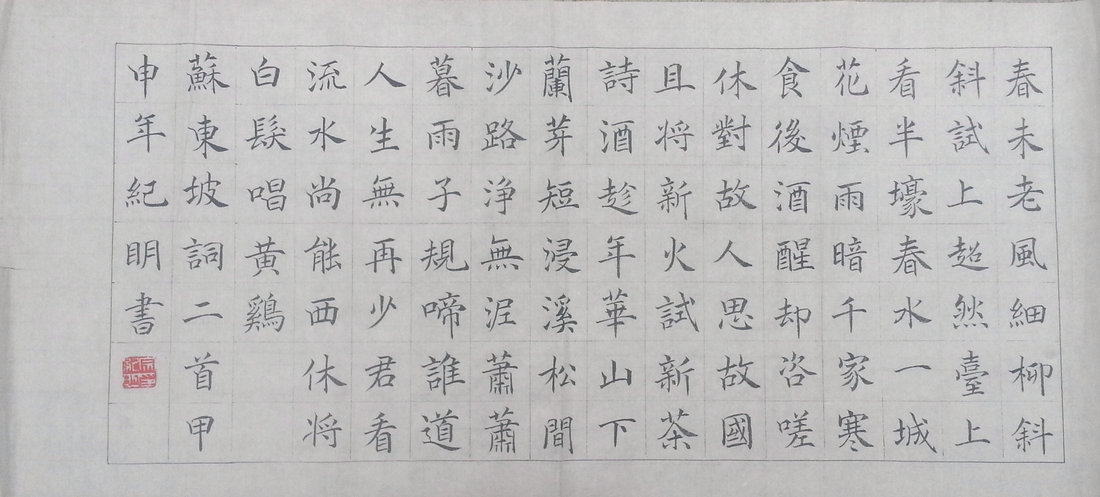 春未老風細柳斜
斜試上超然臺上
看半壕春水一城
花煙雨暗千家寒
食後酒醒却咨嗟
休對故人思故國
且将新火試新茶
詩酒趁年華山下
蘭芽短浸溪松間
沙路淨無泥蕭蕭
暮雨子規啼誰道
人生無再少君看
流水尚能西休将
白髮唱黃鷄
蘇東坡詞二首甲
申年紀明書